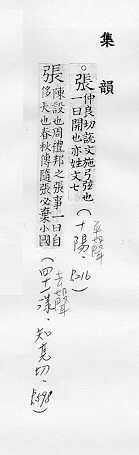 集韻
。張仲良切說文施弓弦也
一曰開也亦姓文七
平聲
(十陽. P216)
張陳設也周禮邦之張事一曰自
侈大也春秋傳隨張必棄小國
去聲
(四十一漾. 知亮切. P598)